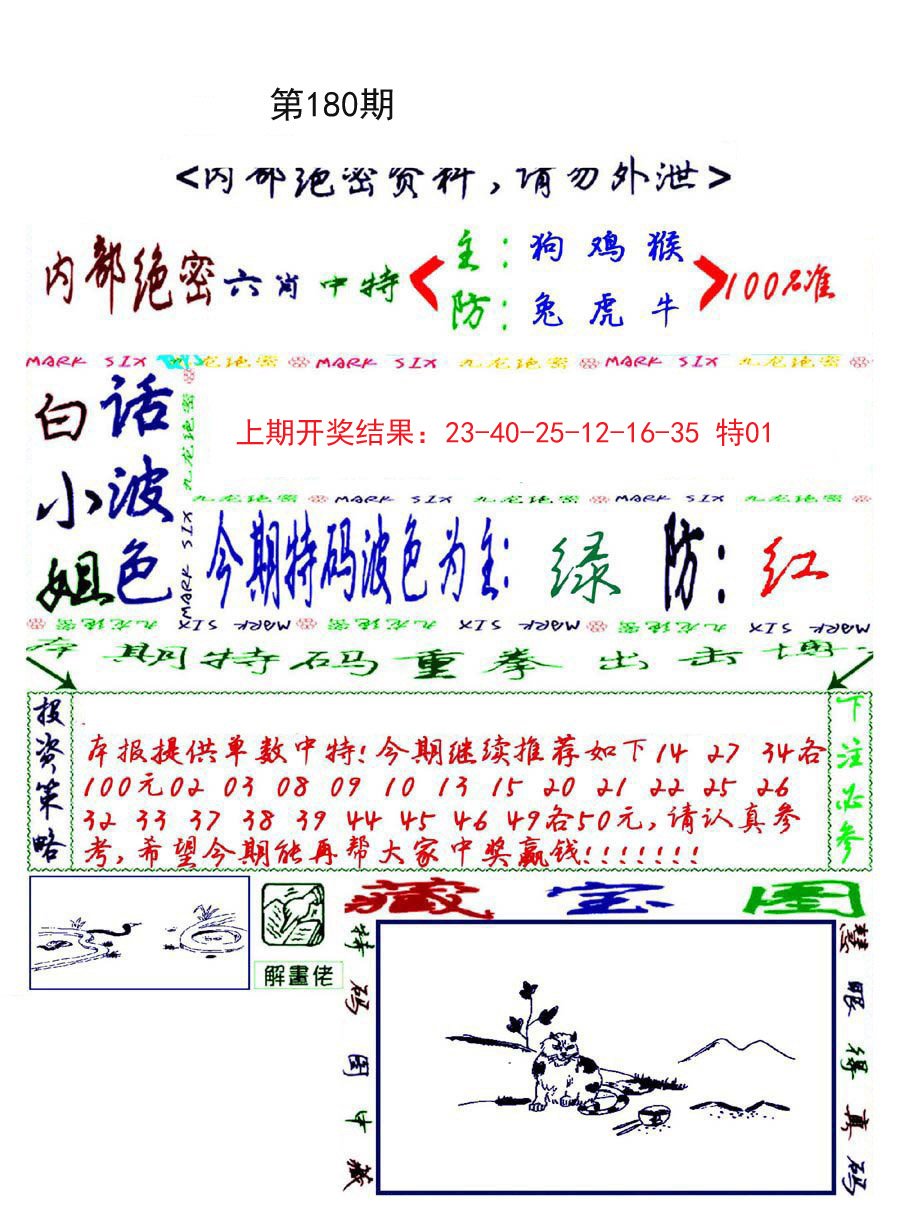 第180期
<内部绝密资料,请勿外泄>
内部绝密六肖中特
主:狗鸡猴
防:兔虎牛
100%准
MARK SIX 九龙绝密 MARK SIX 九龙绝密 MARK SIX 九龙绝密
白话
小波
姐色
九龙绝密
MARK SIX
上期开奖结果:23-40-25-12-16-35 特01
九龙绝密 MARK SIX 九龙绝密 MARK SIX 九龙绝密
今期特码波色为主:绿 防:红
九龙绝密 MARK SIX 九龙绝密 MARK SIX 九龙绝密 MARK SIX
本期特码重拳出击博
投资策略
本报提供单数中特!今期继续推荐如下14 27 34各
100元02 03 08 09 10 13 15 20 21 22 25 26
32 33 37 38 39 44 45 46 49各50元,请认真参
考,希望今期能再帮大家中奖赢钱!!!!!!!
下注必参
解畫佬
藏宝图
特码图中藏
慧眼得真码